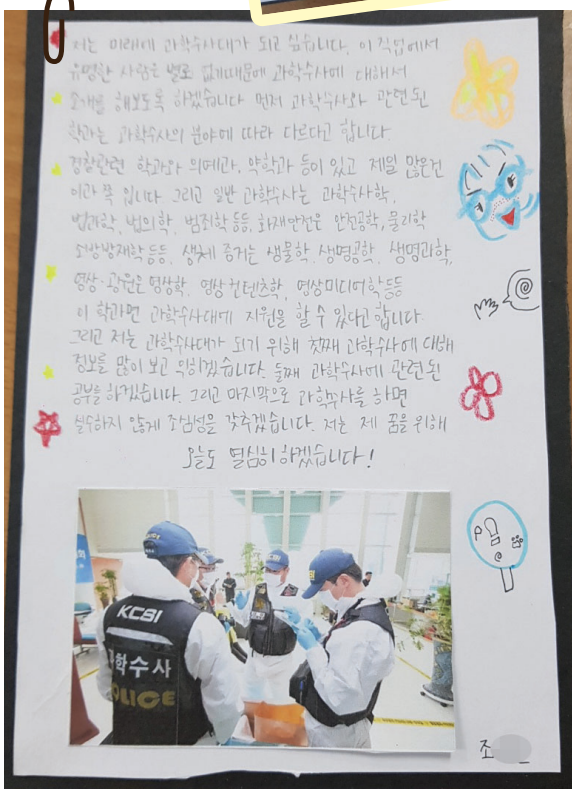 저는 미래에 과학수사대가 되고 싶습니다. 이 직업에서
유명한 사람은 별로 없기때문에 과학수사에 대해서
소개를 해보도록 하겠습니다. 먼저 과학수사와 관련된
학과는 과학수사의 분야에 따라 다르다고 합니다.
경찰관련 학과와 의예과, 약학과 등이 있고 제일 많은건
이과 쪽 입니다. 그리고 일반 과학수사는 과학수사학,
법과학, 법의학, 범죄학 등등, 화재안전은 안전공학, 물리학
소방방재학 등등, 생체 증거는 생물학, 생명공학, 생명과학,
영상·광원은 영상학, 영상 컨텐츠학, 영상미디어학 등등
이 학과면 과학수사대에 지원을 할 수 있다고 합니다.
그리고 저는 과학수사대가 되기 위해 첫째 과학수사에 대해
정보를 많이 보고 익히겠습니다. 둘째 과학수사에 관련된
공부를 하겠습니다. 그리고 마지막으로 과학수사를 하면
실수하지 않게 조심성을 갖추겠습니다. 저는 제 꿈을 위해
오늘도 열심히 하겠습니다!
KCSI
과학수사
POLICE
조